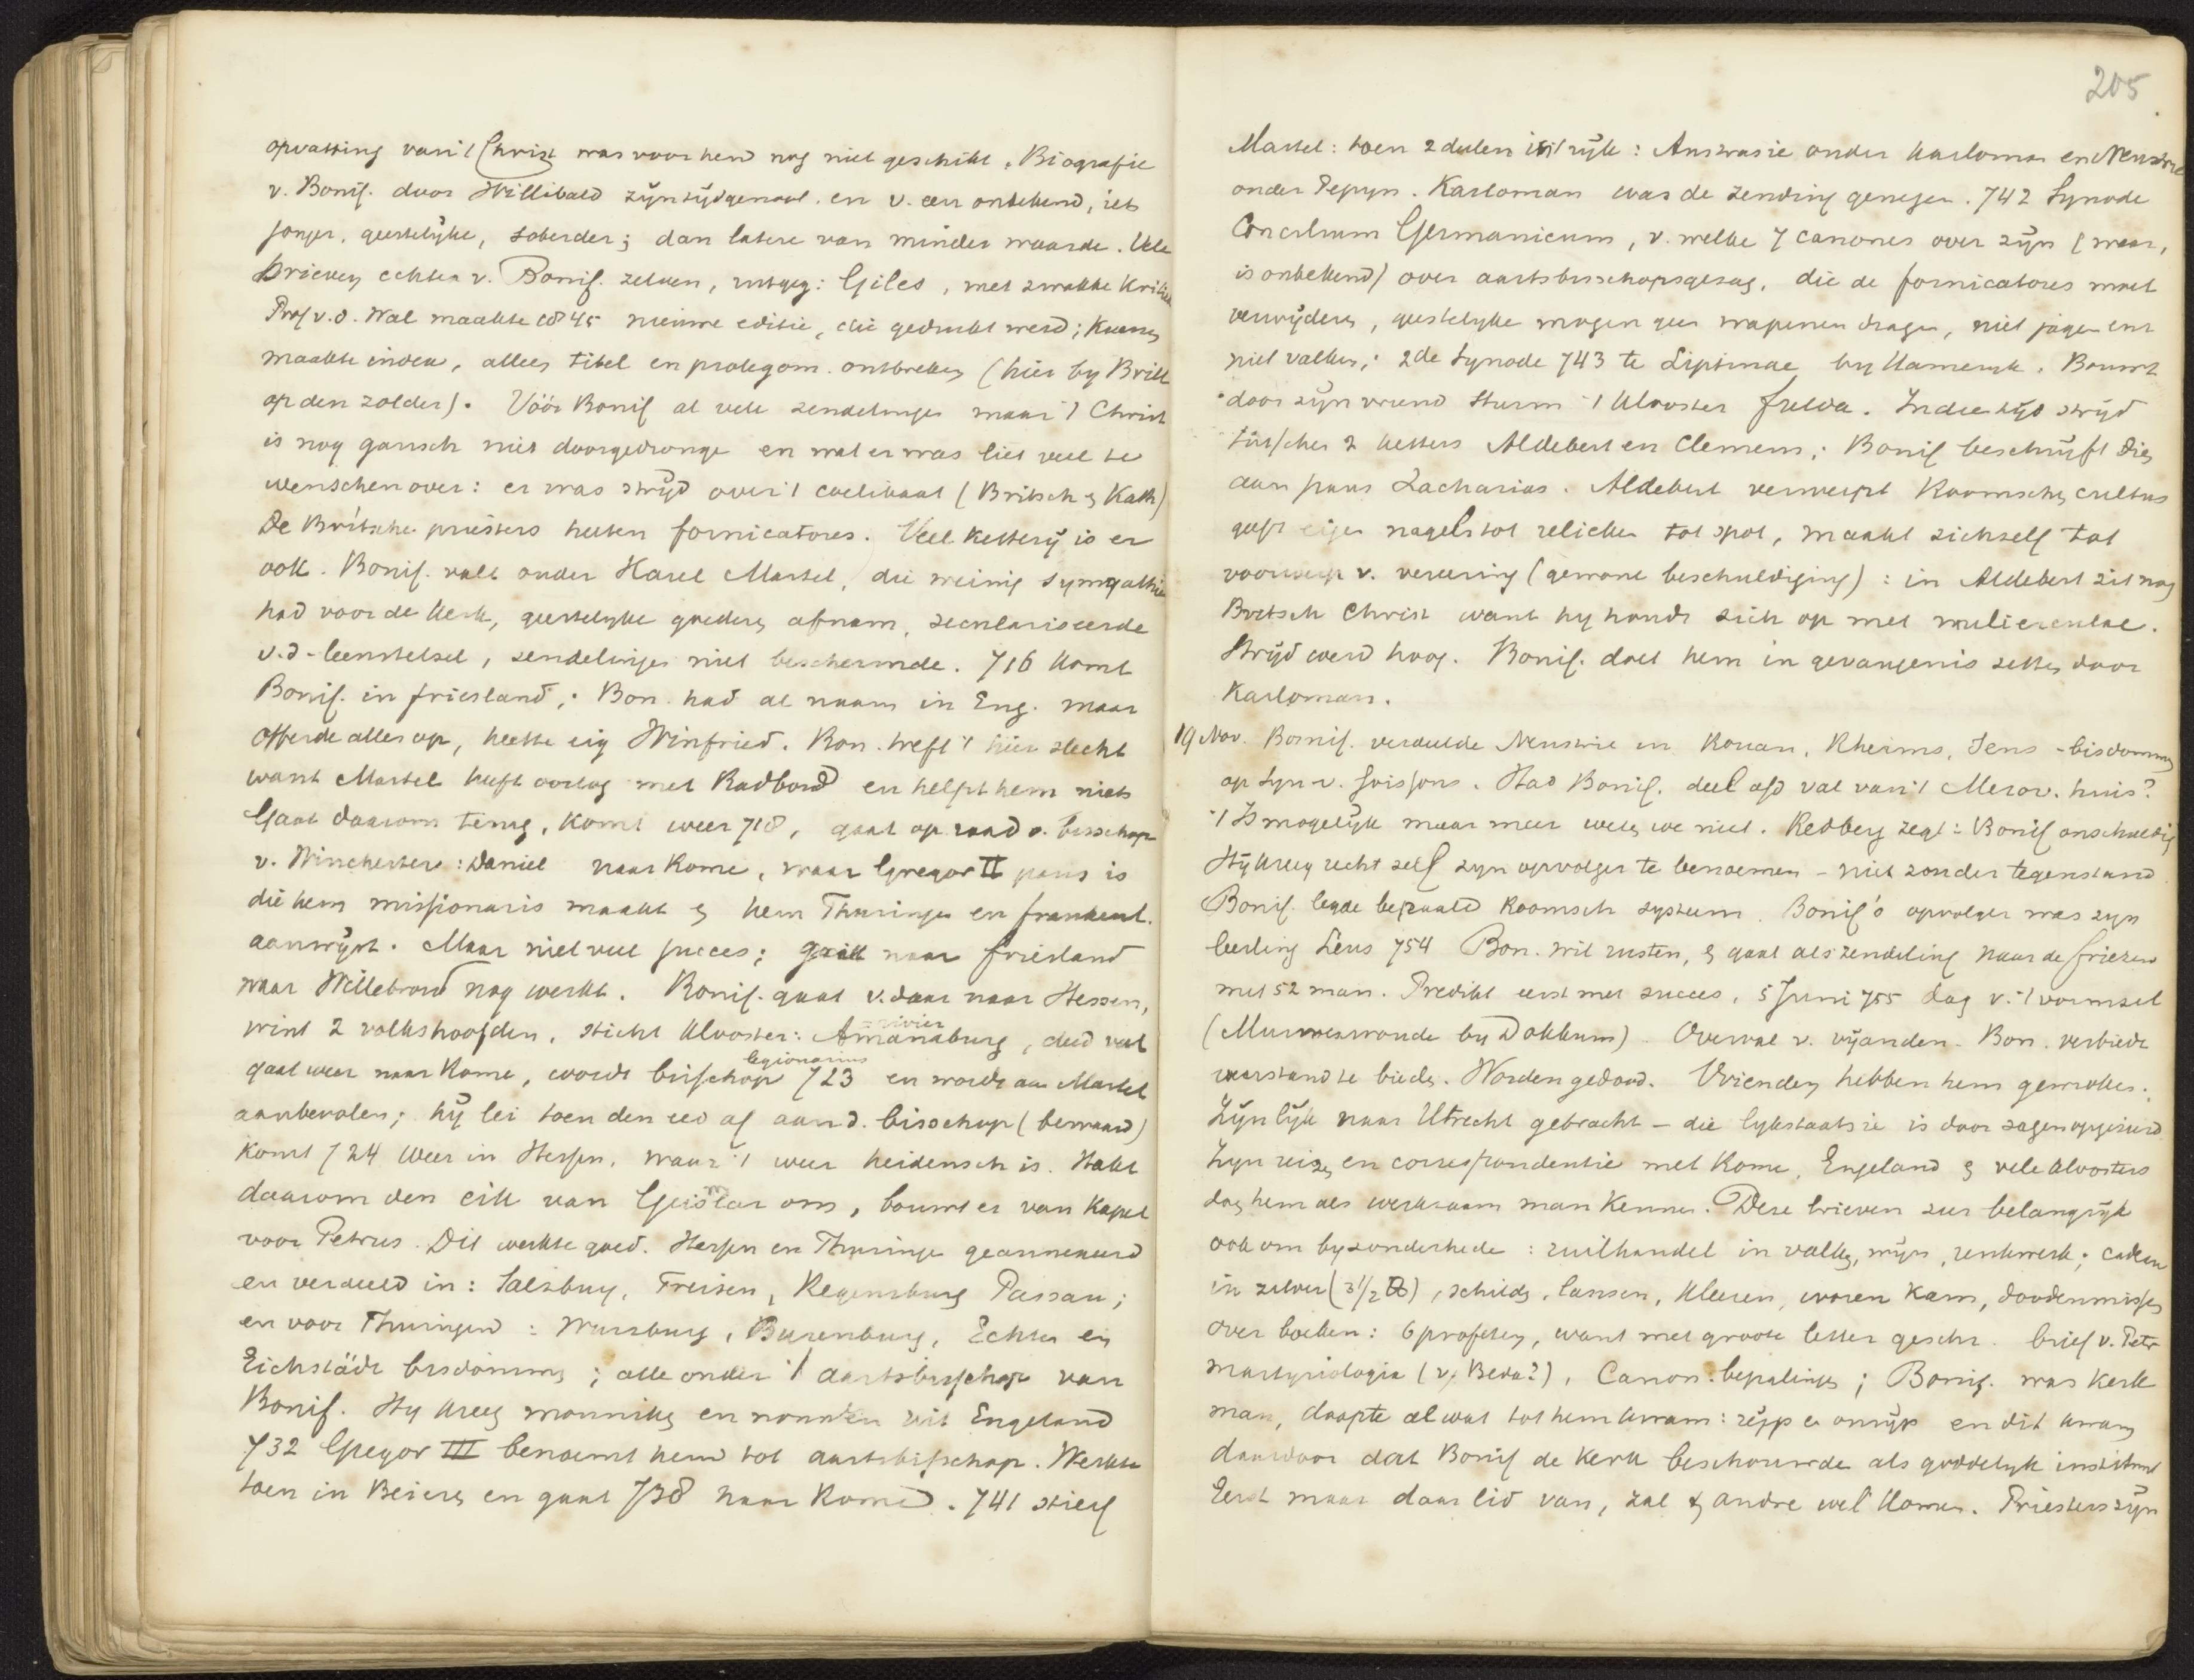 opvatting van 't Christ was voor hen nog niet geschikt. Biografie
v. Bonif. door Willibald zijn tijdgenoot. en v. een onbekend, iets
jonger, geestelijke, soberder; dan latere van minder waarde. Vele
brieven echter v. Bonif. zelven, uitgeg: Giles, met zwakke Kritiek
Prof v.d. Wal maakte 1845 nieuwe editie, die gedrukt werd; Kuenen
maakte index, alleen titel en prolegom. ontbreken (hier by Brill
op den zolder). Vóór Bonif al vele zendelingen maar 't Christ
is nog gansch niet doorgedronge en wat er was liet veel te
wenschen over: er was strijd over 't coelibaat (Britsch & Kath)
De Britsche priesters heeten fornicatores. Veel ketterij is er
ook. Bonif. valt onder Karel Martel, die weinig sympathie
had voor de Kerk, geestelyke goederen afnam, seculariseerde
v.d. leenstelsel, zendelinge niet beschermde. 716 komt
Bonif. in friesland; Bon. had al naam in Eng. maar
offerde alles op, heette eig Winfried. Bon. treft 't hier slecht
want Martel heeft oorlog met Radboud en helpt hem niets
Gaat daarom terug, komt weer 718, gaat op raad v. bisschop
v. Winchester: Daniel naar Rome, waar Gregor II paus is
die hem missionaris maakt & hem Thuringe en frankenl.
aanwijst. Maar niet veel succes; gaat naar friesland
waar Willebrord nog werkt. Bonif. gaat v. daar naar Hessen,
wint 2 volkshoofden, sticht klooster: Amanaburg, deed veel
= rivier
gaat weer naar Rome, wordt bisschop 723 en wordt aan Martel
legionarius
aanbevolen; hij lei toen den eed af aan d. bisschop (bewaard)
Komt 724 weer in Hessen, waar 't weer heidensch is. Hakt
daarom den eik van Geismar om, bouwt er van Kapel
voor Petrus. Dit werkte goed. Hessen en Thuringe geannexeerd
en verdeeld in: Salzburg, Freisen, Regensburg Passau;
en voor Thuringen: Wurzburg, Burenburg, Echter en
Eichstädt bisdommen; alle onder 't aartsbisschop van
Bonif. Hy kreeg monniken en nonnen uit Engeland
732 Gregor III benoemt hem tot aartsbisschop. Werkte
toen in Beieren en gaat 738 naar Rome. 741 stierf
205
Martel: toen 2 delen in 't rijk: Austrasie onder Karloman en Neustrie
onder Pepyn. Karloman was de zending genegen. 742 Synode
Concilium Germanicum, v. welke 7 canones over zijn (waar,
is onbekend) over aartsbisschopsgezag, die de fornicatores moet
verwijderen, geestelyke mogen geen wapenen dragen, niet jagen en
niet valken; 2de Synode 743 te Liptinae by Kameryk. Bouwt
door zijn vriend Sturm 't klooster fulda. In die tijd strijd
tusschen 2 ketters Aldebert en Clemens; Bonif beschrijft dien
aan paus Zacharias. Aldebert verwerpt Roomschen cultus
geeft eigen nagels tot relieken tot spot, maakt zichzelf tot
voorwerp v. vereering (gewone beschuldiging): in Aldebert zit nog
Britsch Christ want hy houdt zich op met mulierculae.
Strijd werd hoog. Bonif. doet hem in gevangenis zetten door
Karloman.
19 Nov. Bonif. verdeelde Neustrie in Rouan, Rheims, Sens - bisdommen
op Syn v. Soissons. Had Bonif. deel a/d val van 't Merov. huis?
't Is mogelijk maar meer weten we niet. Redberg zegt: Bonif onschuldig
Hij kreeg recht zelf zyn opvolger te benoemen - niet zonder tegenstand
Bonif. legde bepaald Roomsch systeem. Bonif's opvolger was zyn
leerling Leus 754 Bon. wil rusten, & gaat als zendeling naar de friezen
met 52 man. Predikt eerst met succes, 5 Juni 755 dag v. 't vormsel
(Murmerwoude by Dokkum). Overval v. vijanden. Bon. verbiedt
weerstand te bieden. Worden gedood. Vrienden hebben hem gewroken.
Zijn lijk naar Utrecht gebracht - die lykstaatsie is door sagen opgesierd
Zyn reizen en correspondentie met Rome, Engeland & vele kloosters
doen hem als werkzaam man kennen. Deze brieven zeer belangrijk
ook om byzonderhede: ruilhandel in valken, wijn, reukwerk; cadeau
in zilver (3 1/2 ℔), schilden, lansen, kleeren, ivoren kam, doodenmissen
over boeken: 6 profeten, want met groote letter geschr. brief v. Petr
martyriologia (v. Beda?), Canon. bepalingen; Bonif. was kerk
man, doopte al wat tot hem kwam: rijp en onrijp en dit kwam
daardoor dat Bonif de kerk beschouwde als goddelyk instituut
Eerst maar daar lid van, zal 't andre wel komen. Priesters zijn